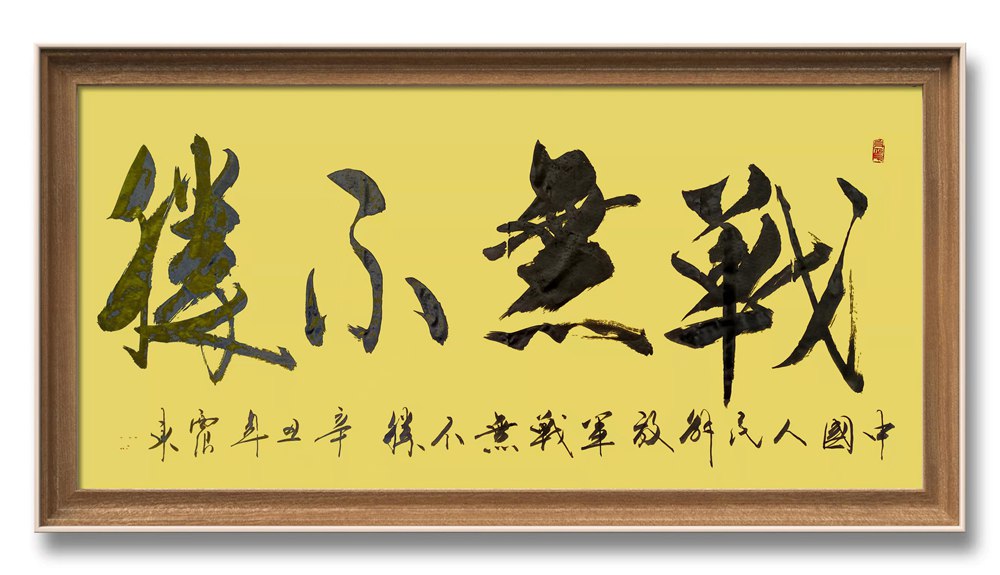 戰無不勝
中國人民解放軍戰無不勝 辛丑年